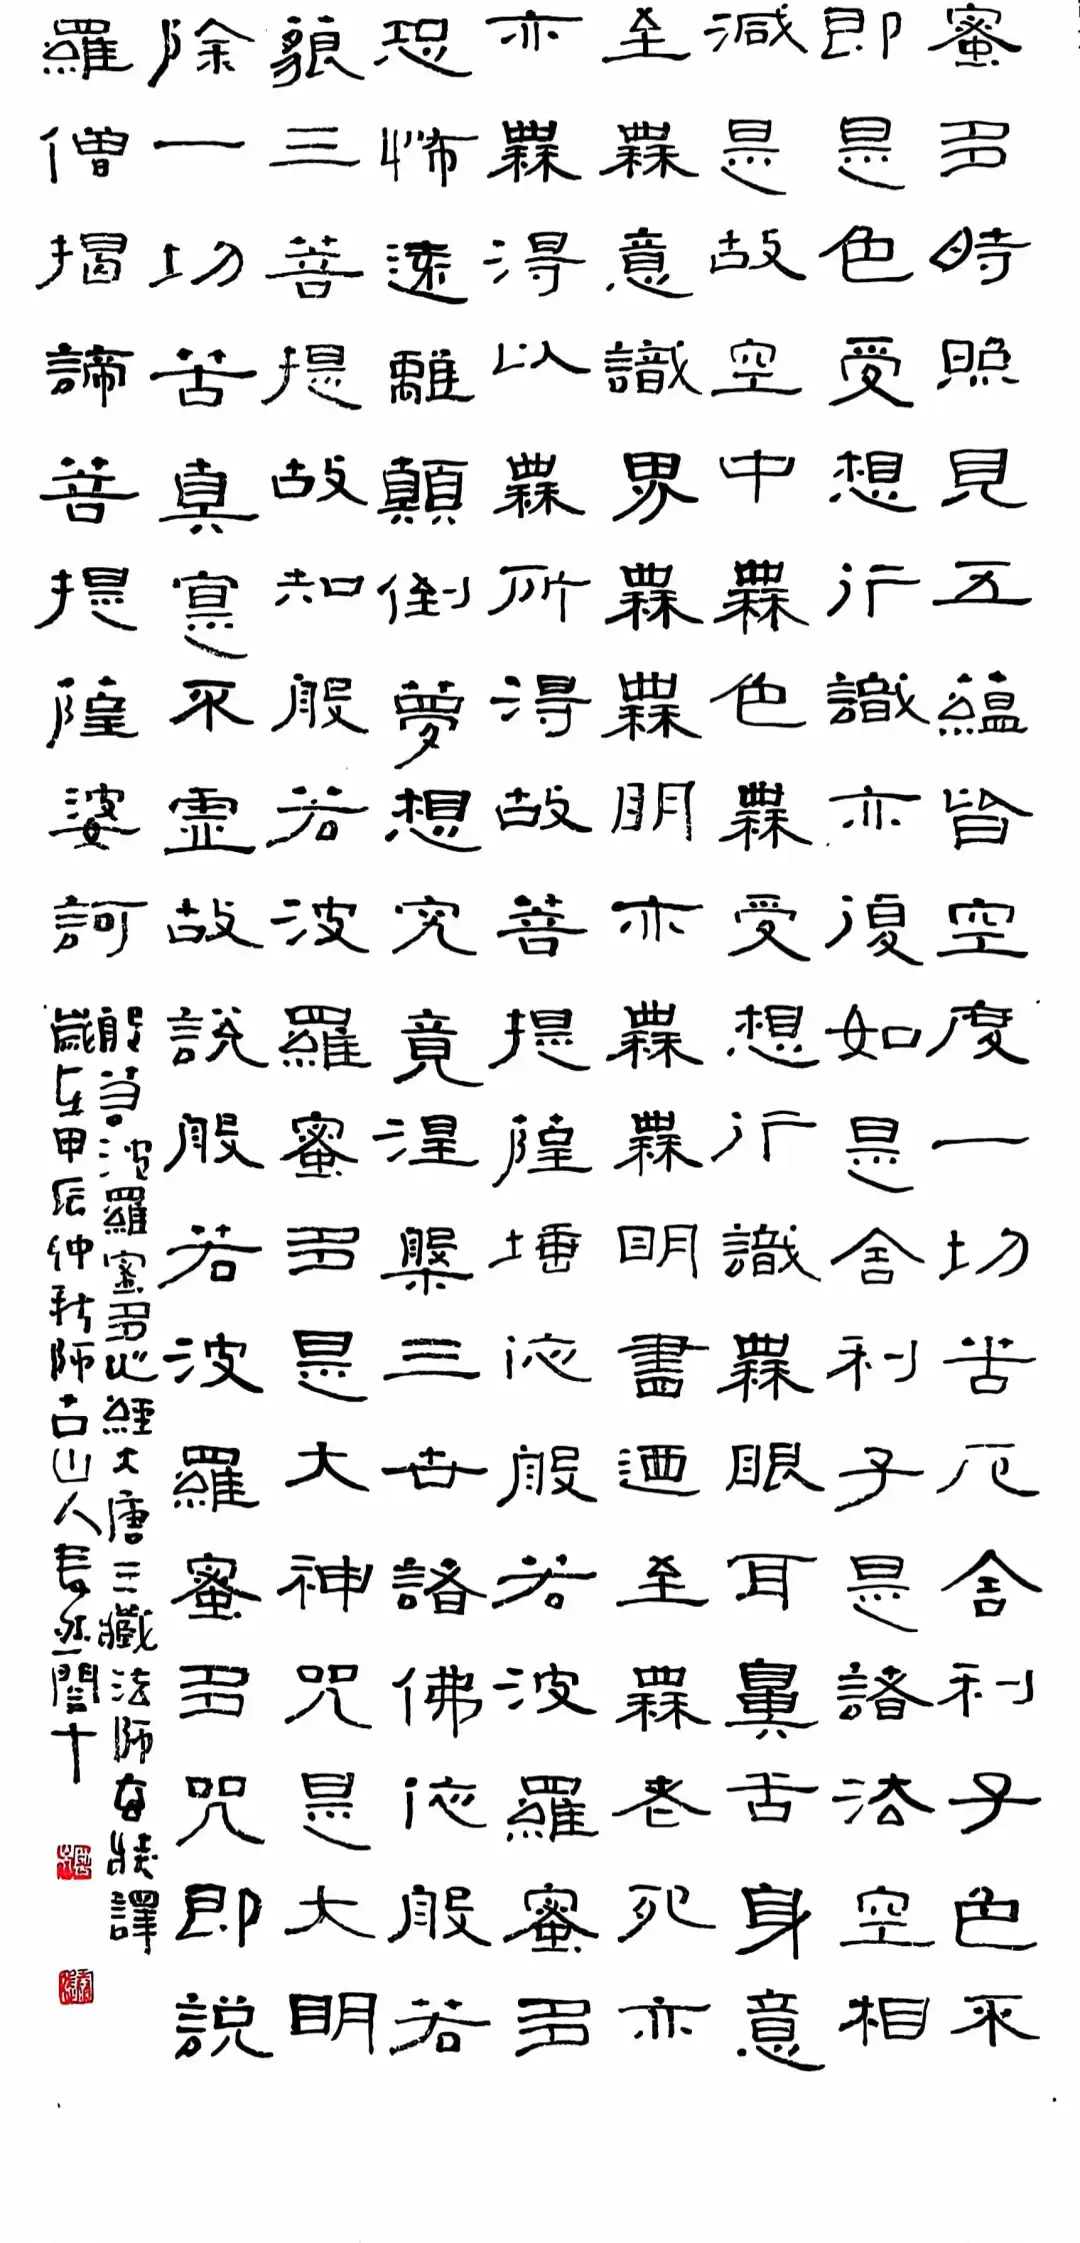 蜜多時照見五蘊皆空度一切苦厄舍利子色不
即是色受想行識亦復如是舍利子是諸法空相
減是故空中無色無受想行識無眼耳鼻舌身意
至無意識界無無明亦無無明盡迺至無老死亦
亦無得以無所得故菩提薩埵依般若波羅蜜多
恐怖遠離顛倒夢想究竟涅槃三世諸佛依般若
藐三菩提故知般若波羅蜜多是大神咒是大明
除一切苦真實不虛故說般若波羅蜜多咒即說
羅僧揭諦菩提薩婆訶
般若波羅蜜多心經大唐三藏法師玄奘譯
歲在甲辰仲秋師古山人